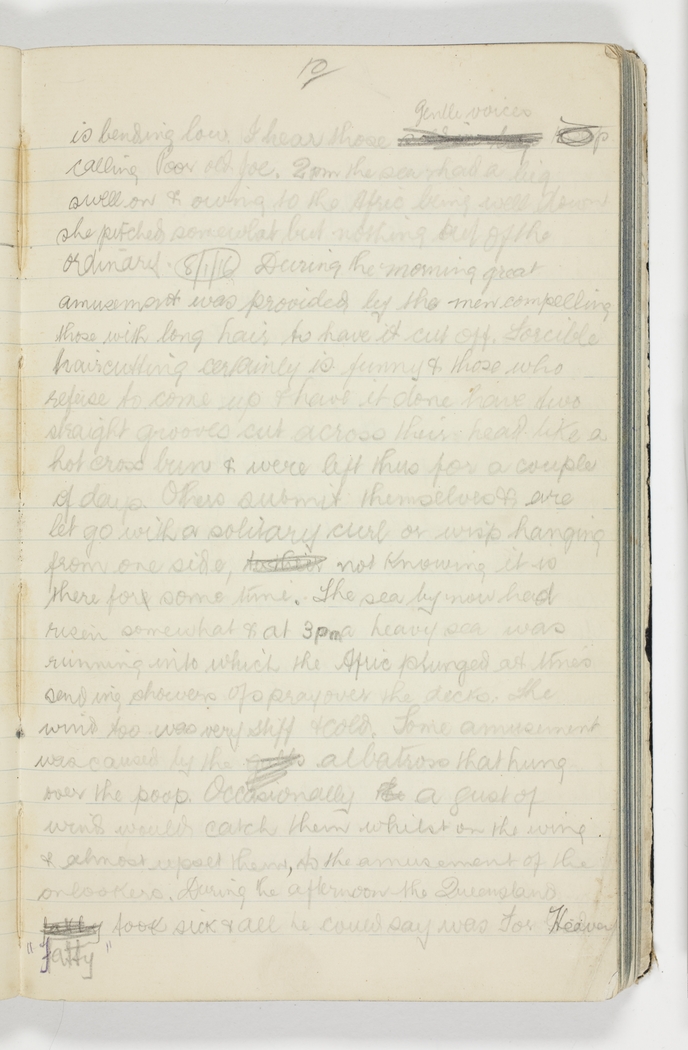 10
gentle voices
is bending low, I hear those
calling Poor old Joe. 2pm the sea had a big
swell on & owing to the Afric being well down
she pitched somewhat but nothing out of the
ordinary. 8/1/16 During the morning great
amusement was provided by the men compelling
those with long hair to have it cut off. Forcible
haircutting certainly is funny & those who
refuse to come up & have it done have two
straight grooves cut across their head like a
hot cross bun & were left thus for a couple
of days. Others submit themselves & are
let go with a solitary curl or wisp hanging
from one side, not knowing it is
there for some time. The sea by now had
risen somewhat & at 3pm a heavy sea was
running into which the Afric plunged at times
sending showers of spray over the decks. The
wind too was very stiff & cold. Some amusement
was caused by the albatross that hung
over the poop. Occasionally a gust of
wind would catch them whilst on the wing
& almost upset them, to the amusement of the
onlookers. During the afternoon the Queensland
took sick & all he could say was "For Heaven
"Fatty"